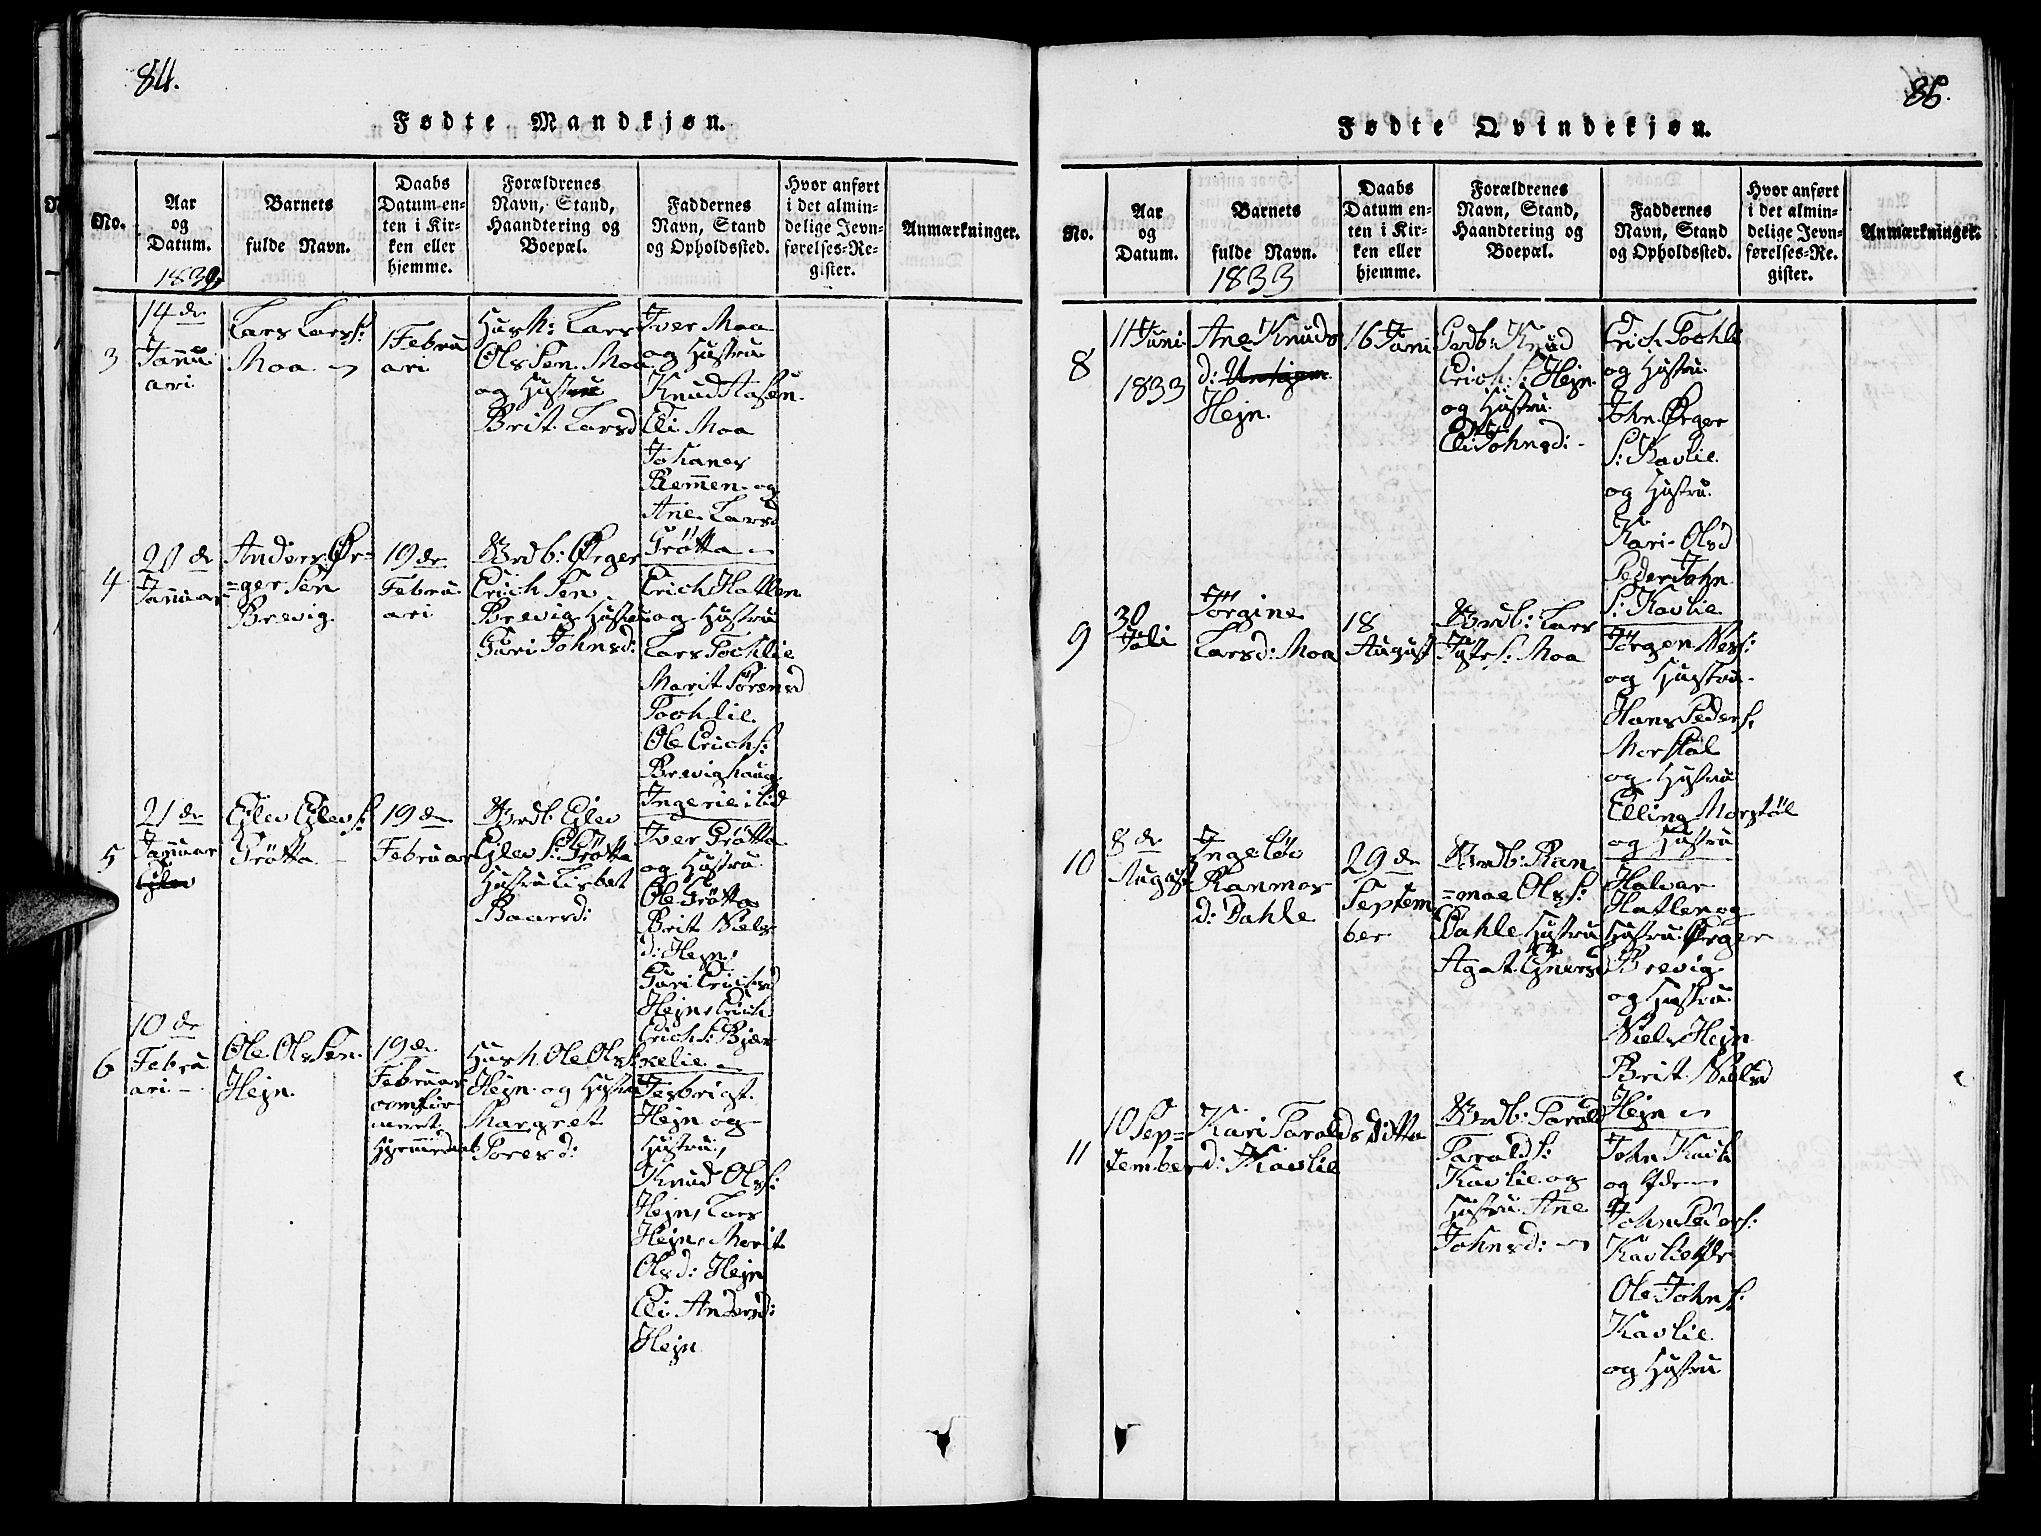 84.
Fødte Mandkjøn.
No.
Aar
og
Datum.
1834
Barnets
fulde Navn.
Daabs
Datum en-
ten i Kir-
ken eller
hjemme.
Forældrenes
Navn, Stand,
Haandtering og
Boepæl.
Faddernes
Navn, Stand
og Opholdssted.
Hvor anført
i det almin-
delige Jevn-
førelses-Re-
gister.
Anmærkninger.
3
14 de
Janu
ari
Lars Larss:
Moa
1 Febru
ari
Husm: Lars
Ols Sen Moa
og Hustru
Brit Larsd
Iver Moa
og Hustru
Knud Aasen
Eli Moa
Johanes
Remmen og
Ane Larsd
Grötta
4
20 de
Januar
Anders Ør=
=ger Sen
Brevig
19 de
Febru
ari
Brdb: Ørger
Erich Sen
Brevig Hustru
Guri Johnsd:
Erich Hatlen
og Hustru
Lars Tochlie
Marit Sørensd
Tochlie
Ole Erichs:
Brevighaug
Ingerie i Lid
5
21 de
Januar
Ejlev Ejlevs:
Grötta
19 de
Februar
Brdb Ejlev
Ejlev S: Grötta
Hustru Lisbet
Baarsd:
Iver Grötta
og Hustru
Ole Grötta
Brit Niels
d: Hejn
Guri Erichsd
Hejn, Erich
Erichs: Bjør
kelie
6
10 de
Febru
ari
Ole Ols Sen
Hejn
19 de
Februar
Husm. Ole Ols:
Hejn og Hustru
Margret
Toresd:
Hejn og
Hustru,
Knud Ols:
Hejn, Lars
Hejn, Merit
Olsd: Hejn
Eli Andersd:
Hejn
85.
Fødte Qvindekjøn.
No.
Aar
og
Datum.
Barnets
fulde Navn.
1833
Daabs
Datum en-
ten i Kir-
ken eller
hjemme.
Forældrenes
Navn, Stand,
Haandtering og
Boepæl.
Faddernes
Navn, Stand
og Opholdssted.
Hvor anført
i det almin-
delige Jevn-
førelses-Re-
gister.
Anmærkninger.
8
11 Juni
1833
Ane Knuds
d:
Hejn.
16 Juni
Brdb: Knud
Erich S: Hejn
og Hustru
Eli Johnsd:
Erich Tochli
og Hustru
John Ørger
S: Kavlie
og Hustru
Kari Olsd
Peder John
S: Kavlie
9
30
Juli
Jörgine
Larsd: Moa
18
August
Brdb: Lars
Moa
Jörgen Ness:
og Hustru
Hans Peders:
Morstöl
og Hustru
Elling Morstöl
og Hustru
10
8 de
August
Ingeløv
Ranmos
d: Dahle
29 de
Septem
ber
Brdb: Ran
=moe Ols:
Dahle Hustru
Agat Ejnersd
Halvar
Hatlen og
Hustru Ørger
Brevig
og Hustru
Niels Hejn
Brit Nielsd
Hejn
11
10 Sep=
tember
Kari Tarolds
d: Kavlie
ditto
Brdb: Tarald
Taralds:
Kavlie og
Hustru Ane
Johnsd:
John Kavli
og
John Peders:
Kavlie
Ole Johns:
Kavlie
og Hustru